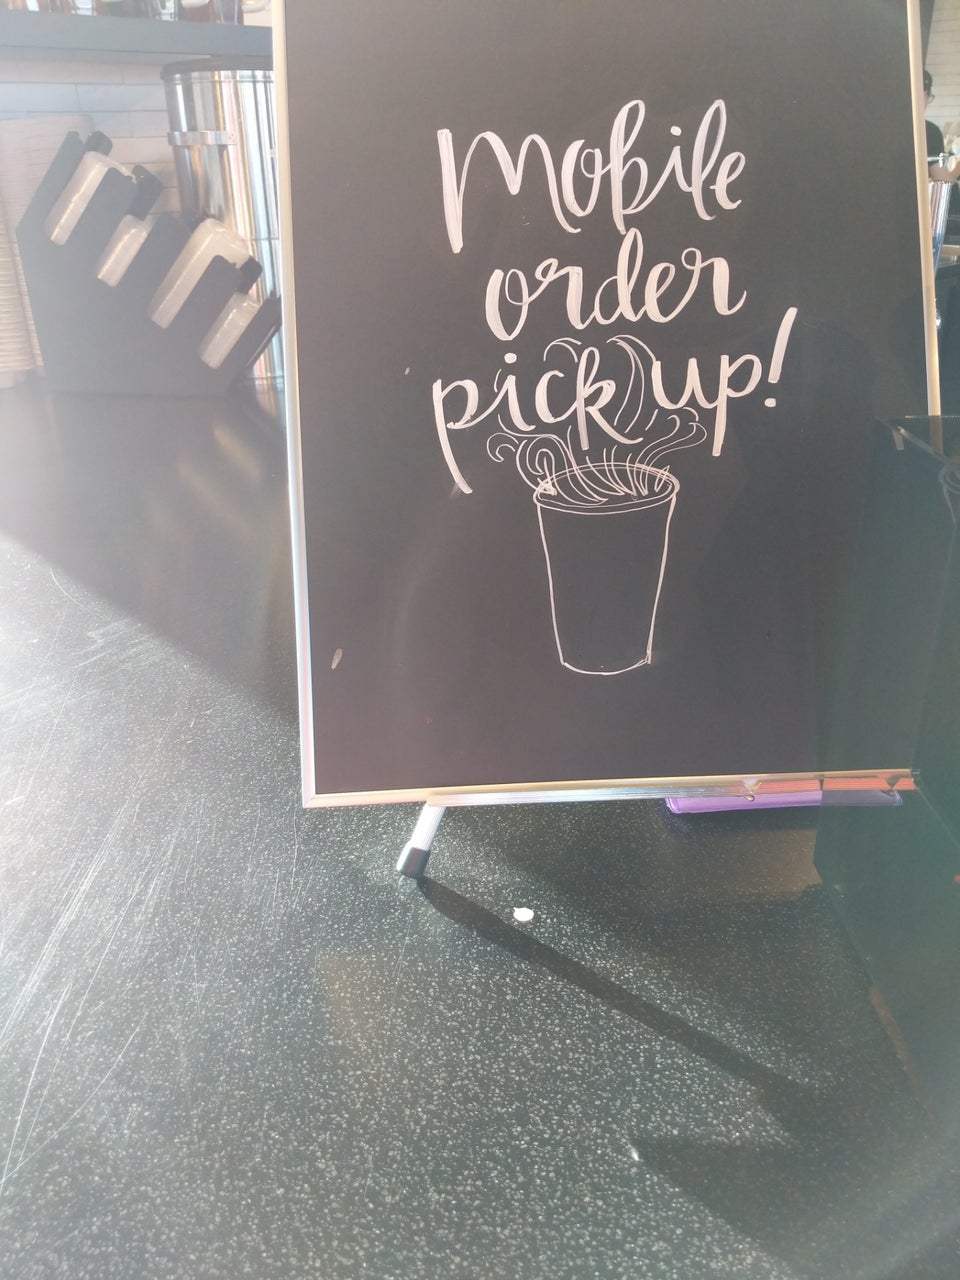 Mobile
order
pick up!